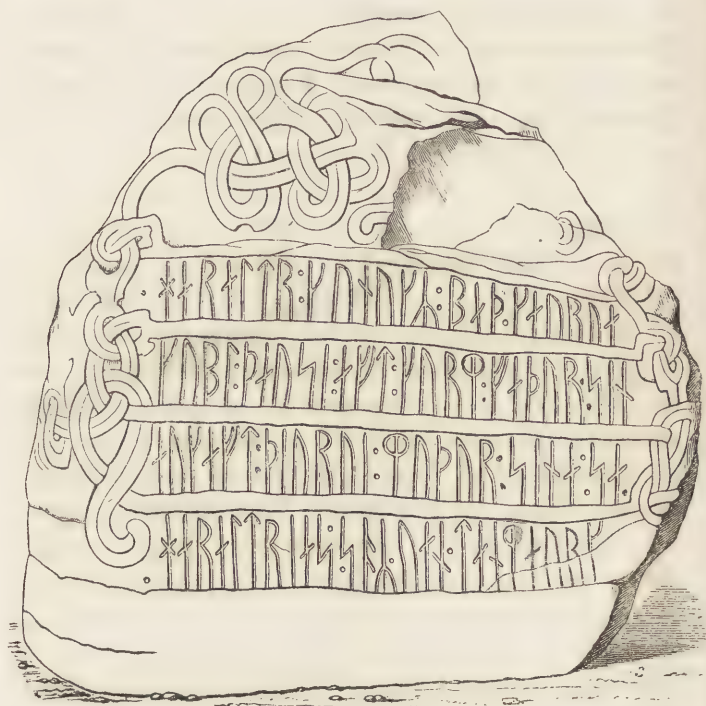 ᚼᛅᚱᛅᛚᛏᚱ:ᚴᚢᚾᚢᚴᛦ:ᛒᛅᚦ:ᚴᛅᚢᚱᚢᛅ
ᚴᚢᛒᛚ:ᚦᛅᚢᛋᛁ:ᛅᚠᛏ:ᚴᚢᚱᛘ:ᚠᛅᚦᚢᚱ:ᛋᛁᚾ
ᛅᚢᚴᛅᚠᛏ:ᚦᚭᚢᚱᚢᛁ:ᛘᚢᚦᚢᚱ:ᛋᛁᚾᛅ:ᛋᛅ
ᚼᛅᚱᛅᛚᛏᚱᛁᛅᛋ:ᛋᚭᛦ:ᚢᛅᚾ:ᛏᛅᚾᛘᛅᚢᚱᚴ